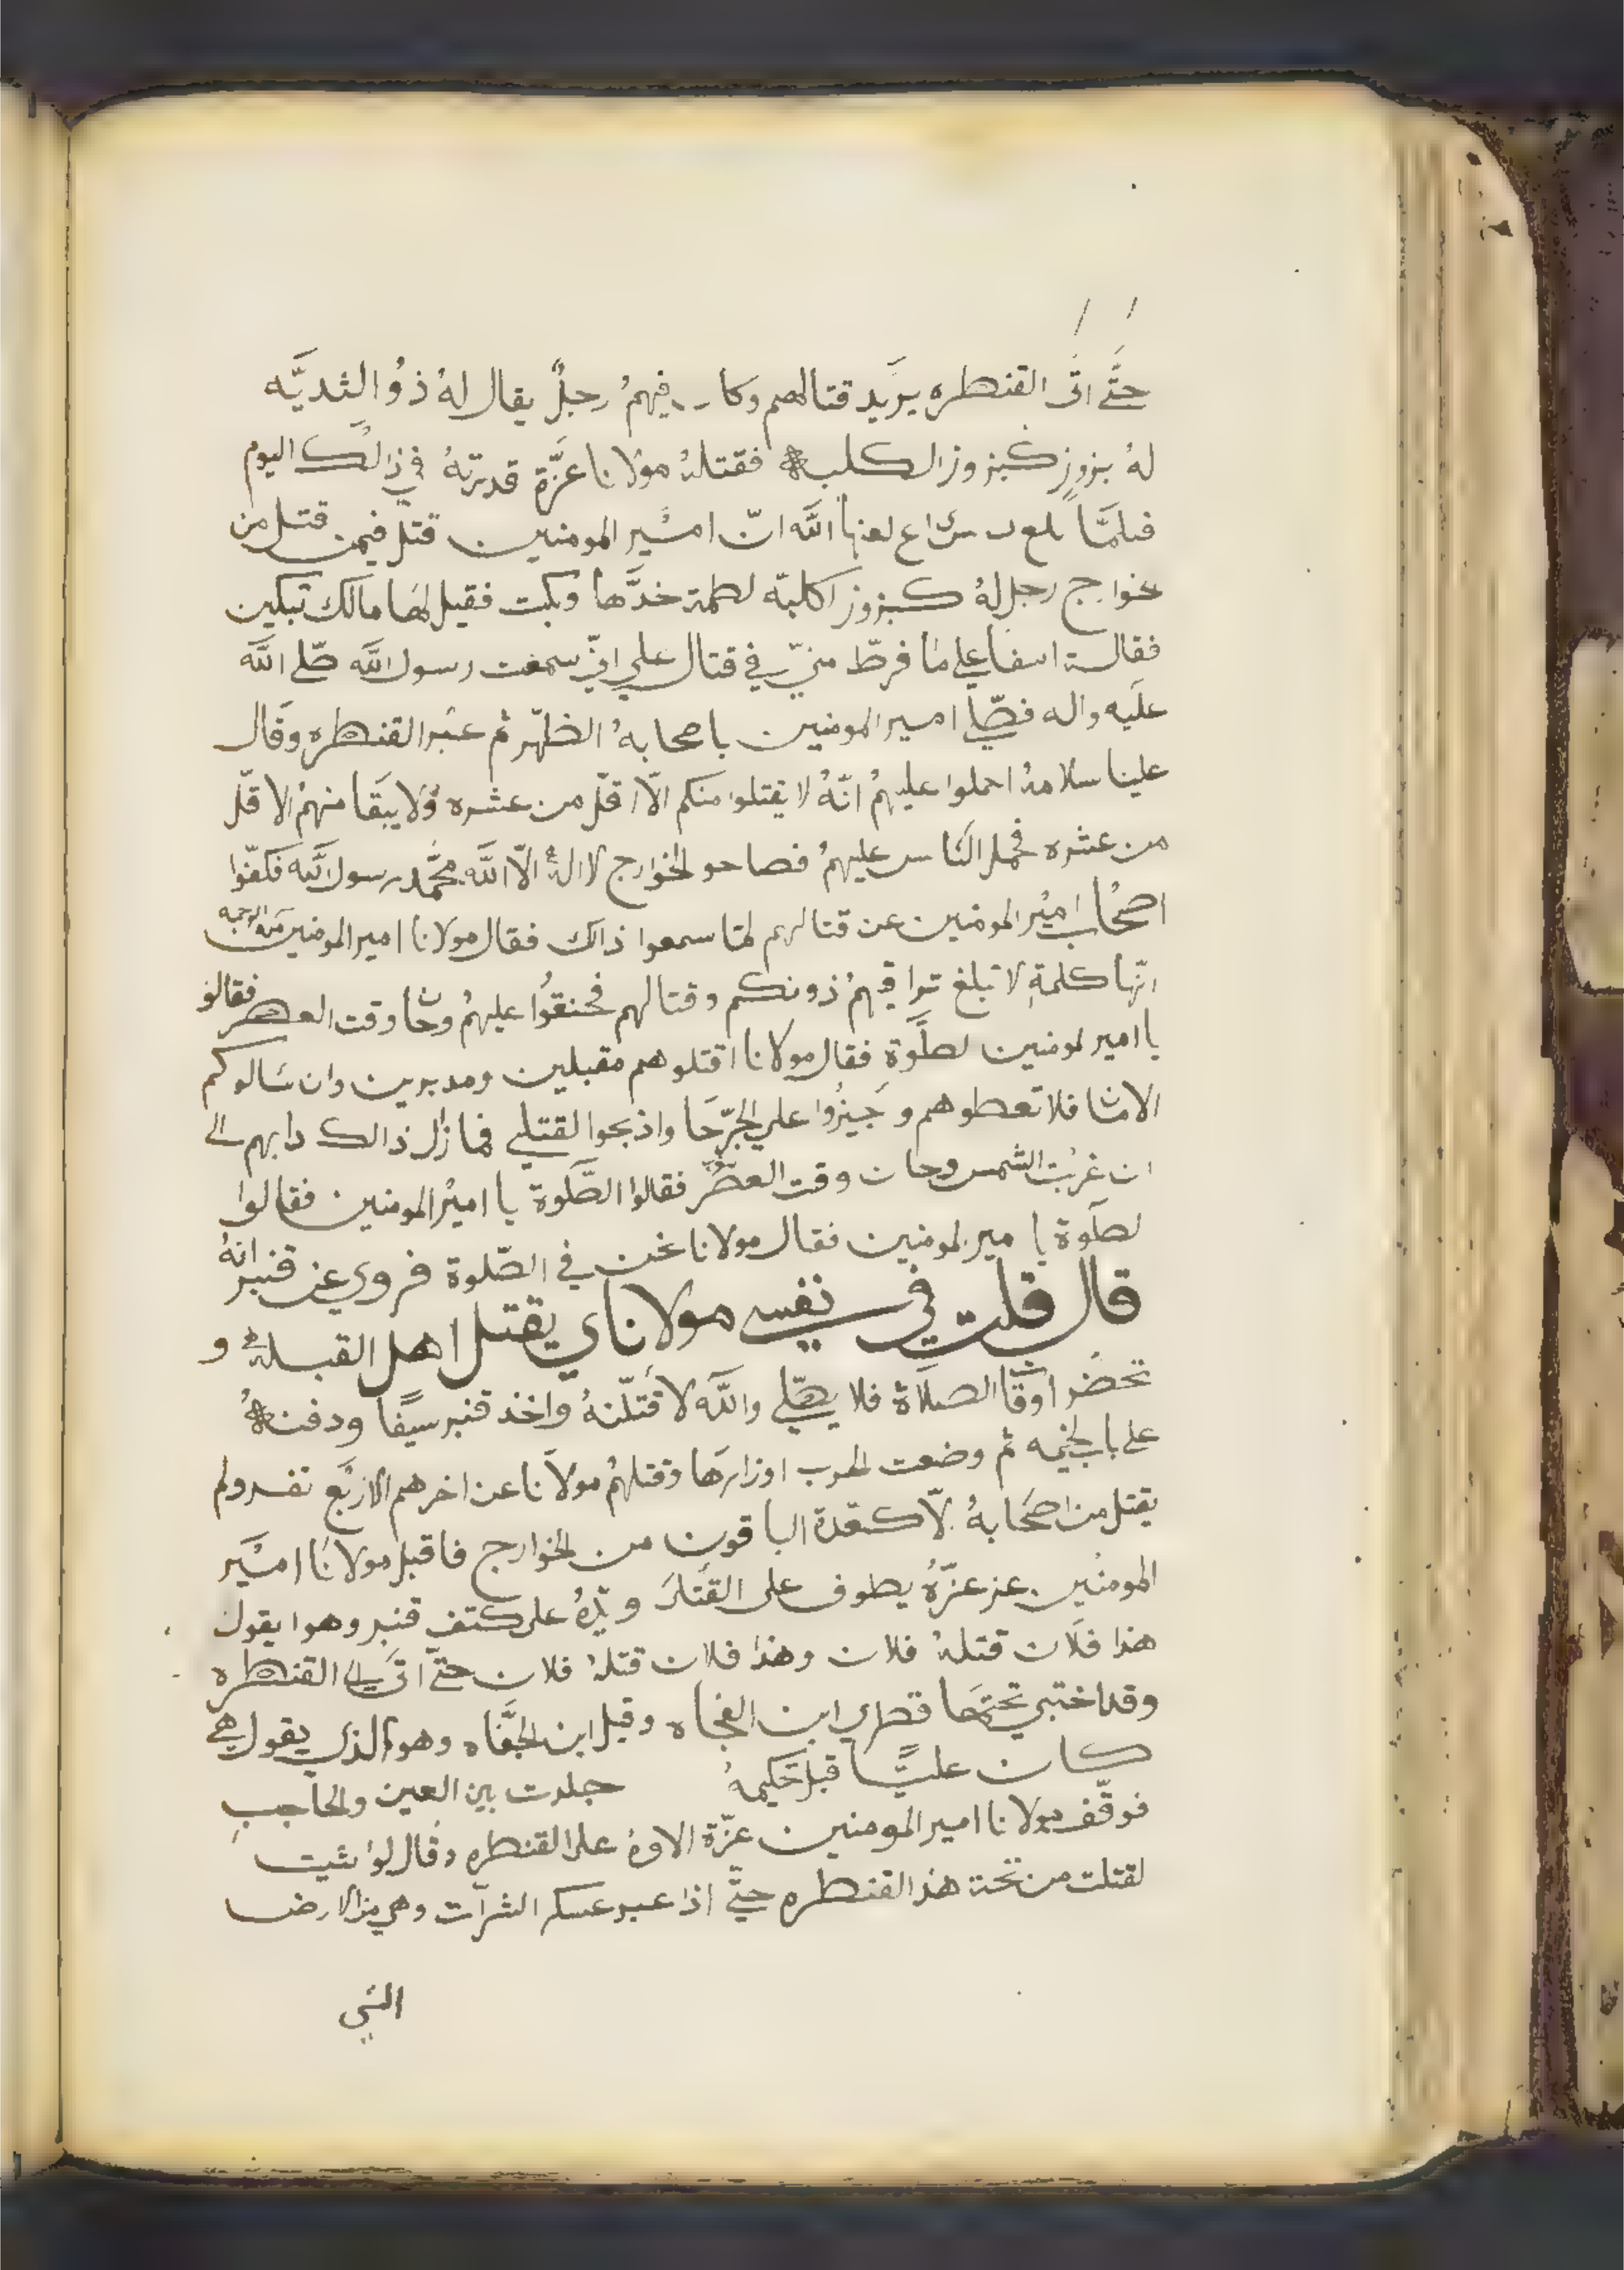 حتَّى اتى القنطره يريد قتالهم وكان فيهمُ رجلٌ يقال لهُ ذوُ الثديَّه
لهُ بزوزٍ كبزوز الكلبه فقتلهُ مولانا عزَّة قدرتهُ في ذالك اليوم
فلمَّا لعنها اللَّه انّ امير المومنين قتل فيمن قتل من
خوارج رجل لهُ كبزوز اكلبّه لطمة خدَّها وبكت فقيل لها مالك تبكين
فقالة اسفا على ما فرطّ منيّ في قتال علي انيّ سمعت رسول اللَّه صّلى اللَّه
عليه واله فصّلى امير المومنين باصحابهُ الظهّر ثم عبر القنطره وقال
علينا سلامهُ احملوا عليهمُ انّهُ لا يقتلوا منكم الّا اقلّ من عشره ولا يبقا منهمُ الا قلّ
من عشره فحمل الناس عليهمُ فصاحو الخوارج لا الهُ الّا اللَّه محمَّد رسول اللَّه فكفّوا
اصحاب امير المومنين عن قتالهم لمّا سمعوا ذالك فقال مولانا امير المومنين منه الرحمه
انّها كلمةِ لا تبلغ تراقيهمُ ذونكم وقتالهم فحنقوُا عليهمُ وحان وقت العصر فقالو
يا امير لمومنين لصلَّوة فقال مولانا اقتلوهم مقبلين ومدبرين وان سَالوكم
الامان فلا تعطوهم وجيزُوا على الجرّحَا واذبحوا القتلى فما زال ذالك دابهم الى
ان غربُت الشمس وحان وقت العصّر فقالوا الصَّلوة يا اميُر المومنين فقالوا
لصلَوة يا مير لمومنين فقال مولانا نحن في الصّلوة فروي عن قنبر انهُ
قال قلت في نفسي مولاناي يقتل اهل القبله و
تحضُر اوقات الصلَاة فلا يصّلي واللَّه لا قتلّنهُ واخذ قنبر سيفًا ودفنهُ
على باب الخيمه ثم وضعت الحرب اوزارها وقتلهمُ مولاَنا عن اخرهم الا اربَع نفر ولم
يقتل من اصحَابهُ لّا كعقدة الباقون من الخوارج فاقبل مولانا اميَر
المومنين عز عزّهُ يطوف على القتلَى ويدهُ على كتف قنبر وهوا يقول
هذا فلَان قتلهُ فلان وهذا فلان قتلهُ فلان حتىّ اتىَ الى القنطره
وقد اختبي تحتها قطري ابن الفجاه وقيل ابن الجفَّاه وهو الذي يقول
كان عليًّا قبل تحكيمهُ جلدت بين العين والحاجبِ
فوقّف مولانا امير المومنين عزّة الاوهُ على القنطره وقال لوا شيت
لقتلت من تحت هذ القنطره حتىّ اذا عبر عسكر الشرآت وهي من الارض
التي